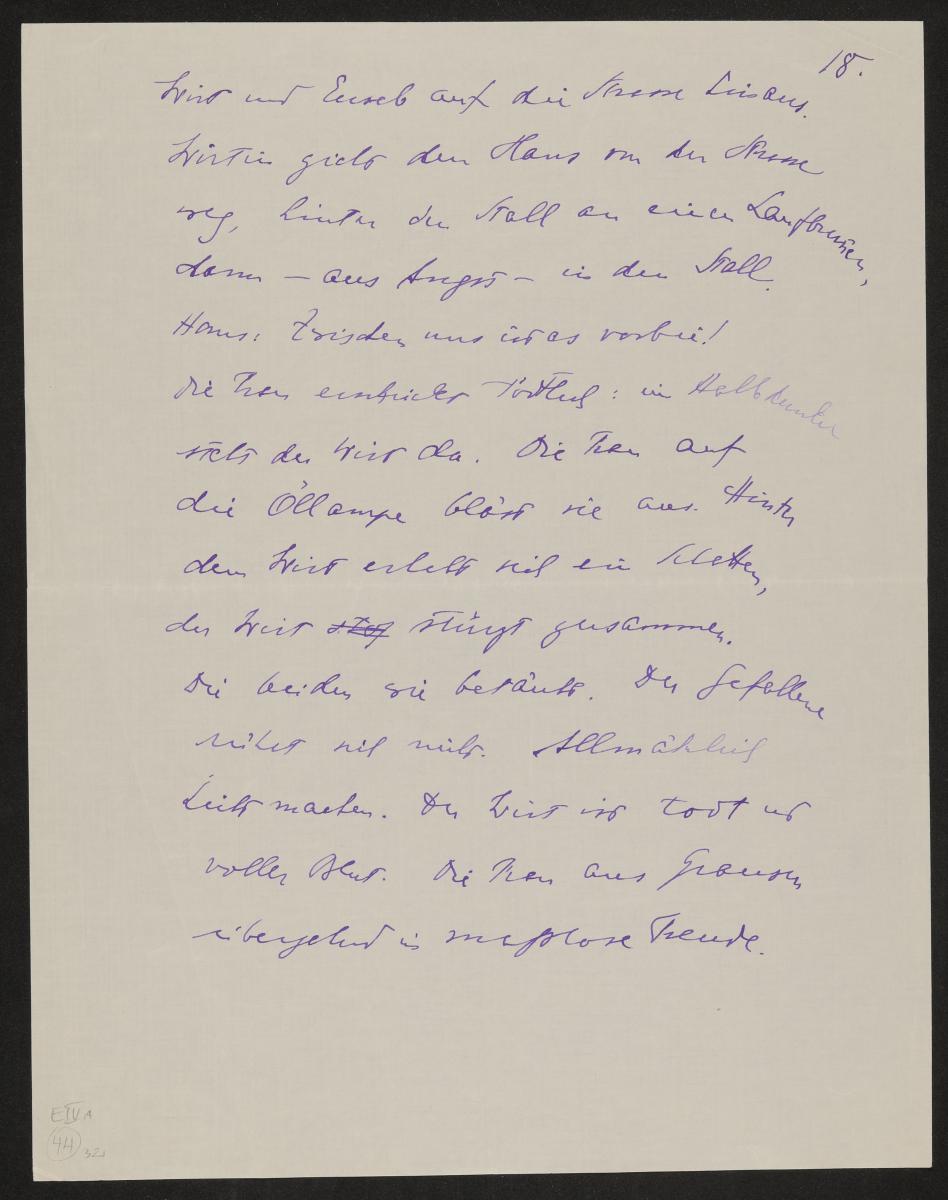 18.
Wirt und Euseb auf die Strasse hinaus.
Wirtin zieht den Hans von der Strasse
weg, hinter den Stall an einen Laufbrunnen,
dann – aus Angst – in den Stall.
Hans: Zwischen uns ist es vorbei!
Die Frau erschrickt tödtlich: im Halbdunkel
steht der Wirt da. Die Frau auf
die Öllampe bläst sie aus. Hinter
dem Wirt erhebt sich ein Schatten,
der Wirt stürzt zusammen.
Die beiden wie betäubt. Der Gefallene
rührt sich nicht. Allmählich
Licht machen. Der Wirt ist todt und
voller Blut. Die Frau aus Grausen
übergehend in maßlose Freude.
E IV A
4H 321